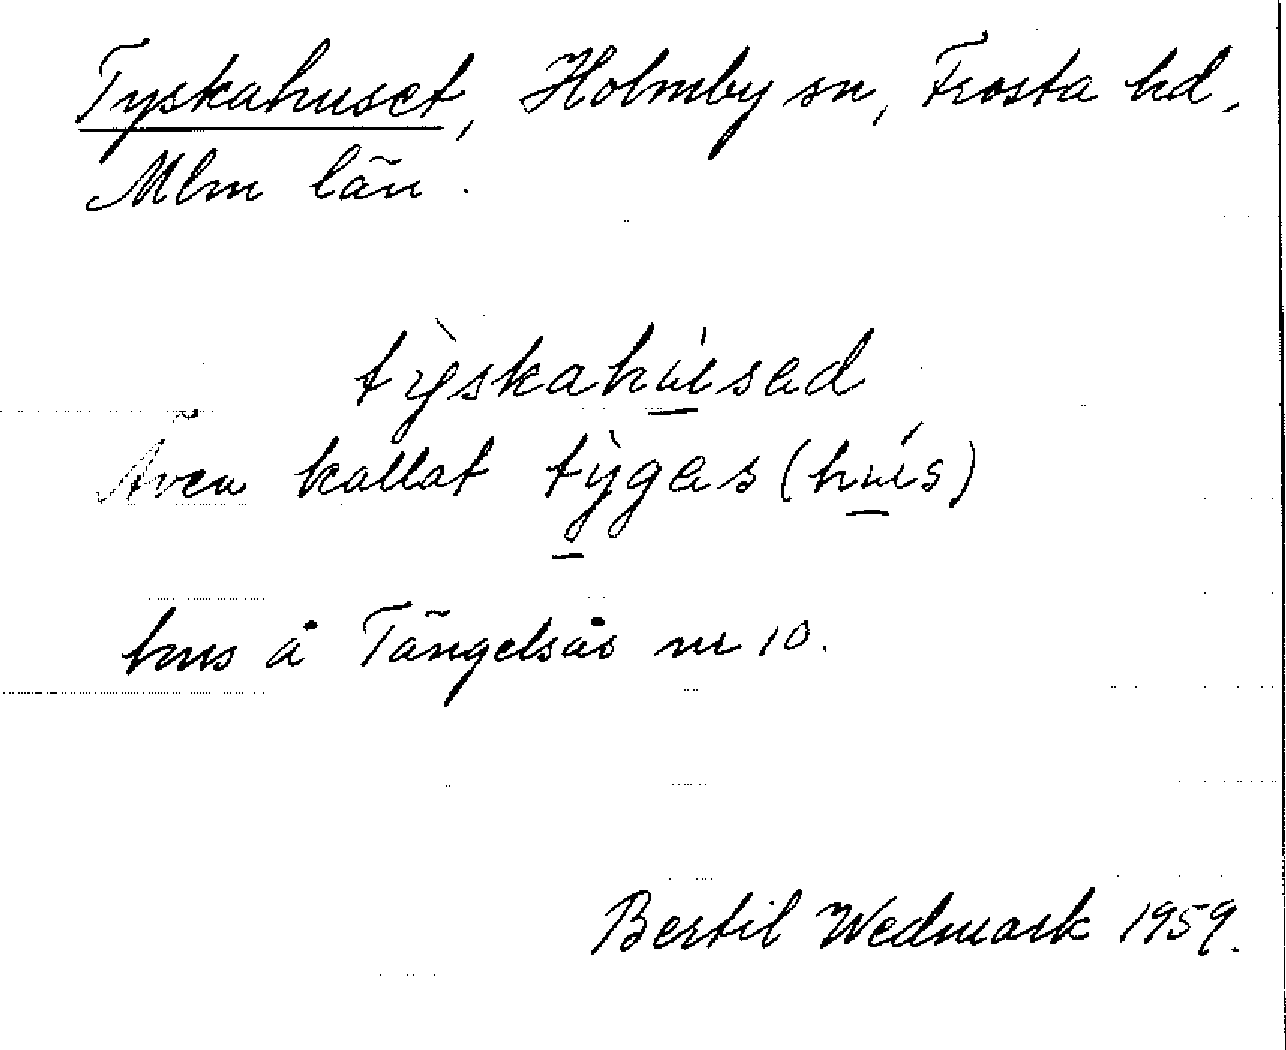 Tyskahuset, Holmby sn, Frosta hd,
Mlm län.
tỳskahu̲ísad
Även kallat tỳ̲gas (hu̲ís)
hus å Tängelsås nr 10.
Bertil Wedmark 1959.